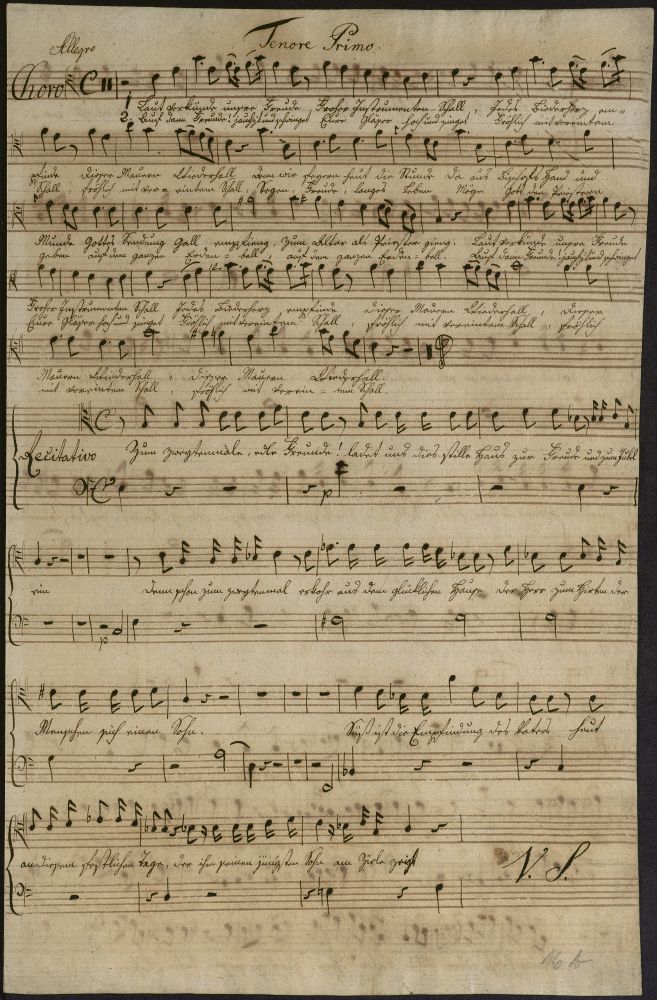 Tenore Primo.
Allegro
Choro
1. Laut verkünde unsre Freude, Froher Instrumenten Schall, Jedes Bruderherz em=
2. Auf dann Freunde! jauchzt und schwinget Eure Gläser hoch und singet Fröhlich mit vereintem
pfinde dieser Mauern Wiederhall, denn wir feyern heut die Stunde da aus Bischofs Hand und
Schall, fröhlich mit vereintem Schall, Segen, Freude, langes Leben Möge Gott den Priestern
Munde Gottes Sendung Gall empfieng, zum Altar als Priester gieng. Laut verkünde unsre Freude
geben auf dem ganzen Erden=ball, auf dem ganzen Erden=ball. Auf dann Freunde jauchzt und schwinget
Froher Instrumenten Schall Jedes Bruderherz empfinde dieser Mauern Wiederhall, dieser
Eure Gläser hoch und singet Fröhlich mit vereintem Schall, fröhlich mit vereintem Schall, fröhlich
Mauern Wiederhall, dieser Mauern Wiederhall.
mit vereintem Schall, fröhlich mit verein=tem Schall.
Recitativo
Zum zweytenmale, edle Freunde! ladet uns dies stille Haus zur Freude und zum Jubel
ein denn schon zum zweytenmal erkohr aus dem glücklichen Hause der Herr zum Hirten der
Menschen sich einen Sohn. Süß ist die Empfindung des Vaters heut
an diesem festlichen Tage, der ihn seinen jüngsten Sohn am Ziele zeigt
V. S.